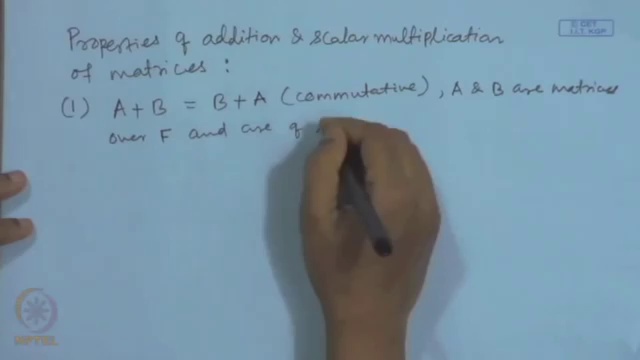 © CET
I.I.T. KGP
Properties of addition & scalar multiplication
of matrices :
(1) A + B = B + A (commutative), A & B are matrices
over F and are of
NPTEL